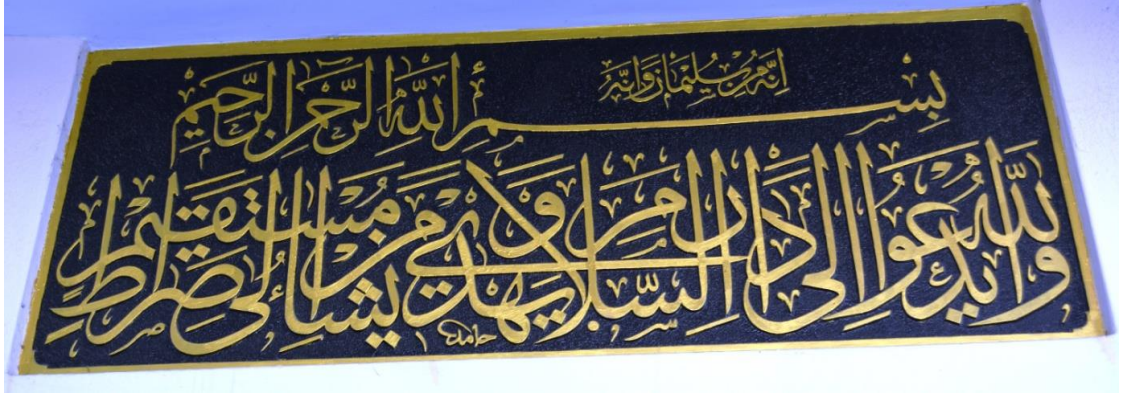 اِنَّهُ مِنْ سُلَيْمَانَ وَاِنَّهُ
بِسْمِ اللّٰهِ الرَّحْمٰنِ الرَّحِيمِ
وَاللّٰهُ يَدْعُوا اِلٰى دَارِ السَّلَامِ وَيَهْدِي مَنْ يَشَاءُ اِلٰى صِرَاطٍ مُسْتَقِيمٍ
حامد